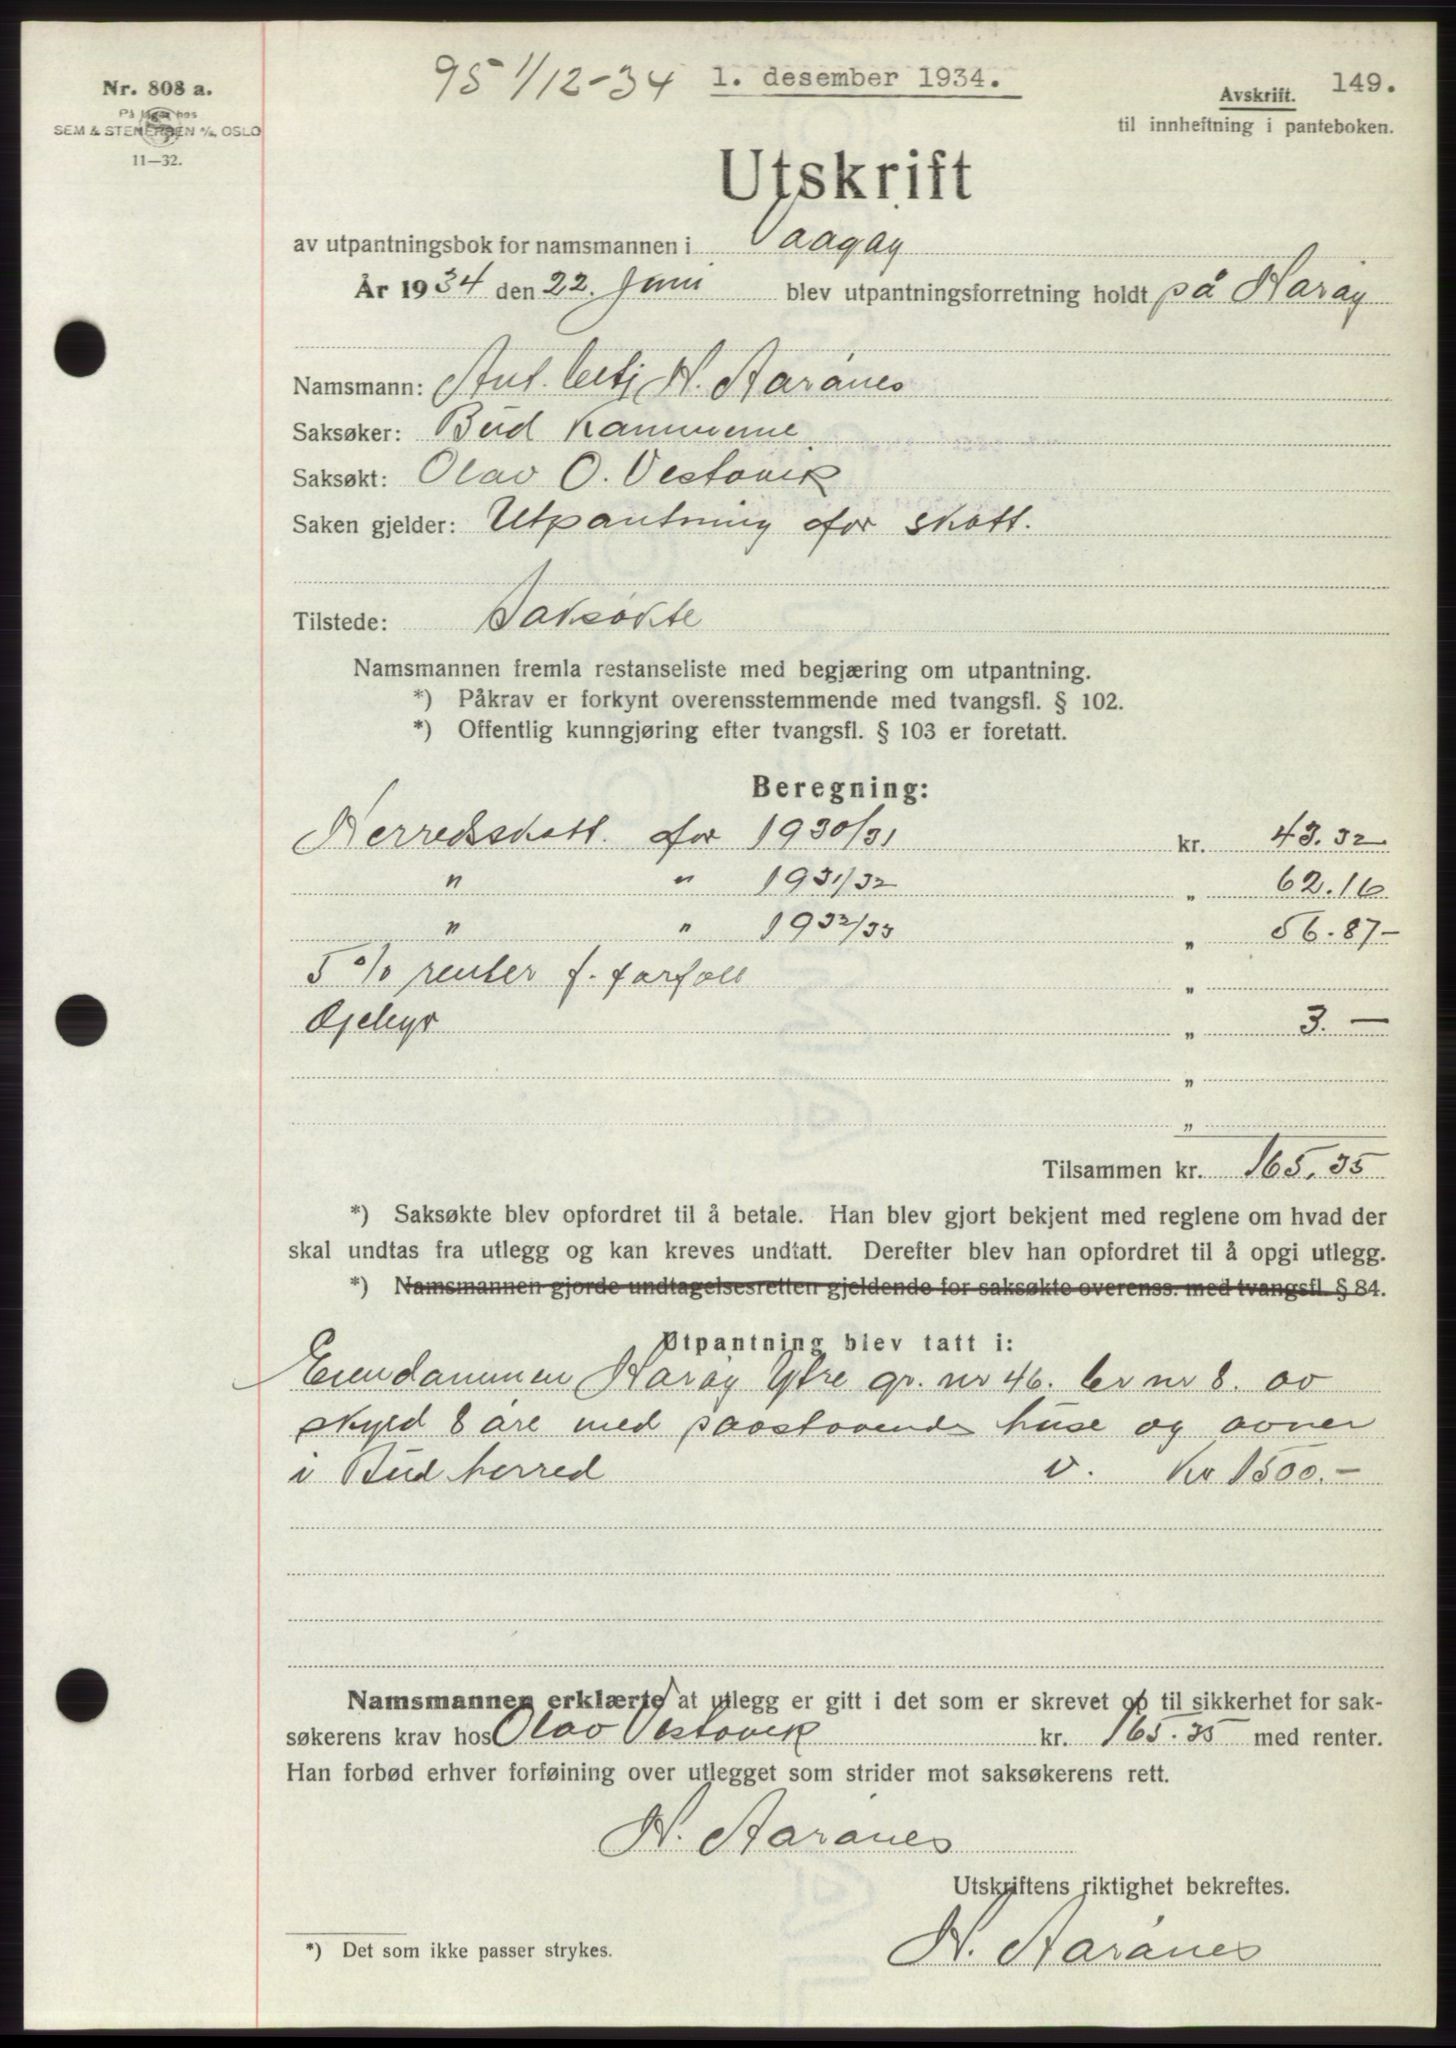 Nr. 808 a.
På lager hos
SEM & STENERSEN A/S, OSLO
11—32.
95 1/12-34 1. desember 1934.
149.
Avskrift.
til innheftning i panteboken.
Utskrift
av utpantningsbok for namsmannen i Vaagøy
År 1934 den 22. Juni blev utpantningsforretning holdt på Harøy
Namsmann: Ant. betj N. Aarønes
Saksøker: Bud Kommune
Saksøkt: Olav O. Vestavik
Saken gjelder: Utpantning for skatt.
Tilstede: Saksøkte
Namsmannen fremla restanseliste med begjæring om utpantning.
*) Påkrav er forkynt overensstemmende med tvangsfl. § 102.
*) Offentlig kunngjøring efter tvangsfl. § 103 er foretatt.
Beregning:
Herredsskatt. for 1930/31 kr. 43.32
" " 1931/32 " 62.16
" " 1932/33 " 56.87-
5 % renter f. forfall "
Gjebyr " 3. —
"
"
Tilsammen kr. 165.35
*) Saksøkte blev opfordret til å betale. Han blev gjort bekjent med reglene om hvad der
skal undtas fra utlegg og kan kreves undtatt. Derefter blev han opfordret til å opgi utlegg.
*) Namsmannen gjorde undtagelsesretten gjeldende for saksøkte overenss. med tvangsfl. § 84.
Utpantning blev tatt i:
Eiendommen Harøy Ytre gr. nr 46. br nr 8. av
skyld 8 øre med paastaaende huse og
i Bud herred v. Kr 1500.-
Namsmannen erklærte at utlegg er gitt i det som er skrevet op til sikkerhet for sak-
søkerens krav hos Olav Vestavik kr. 165.35 med renter.
Han forbød erhver forføining over utlegget som strider mot saksøkerens rett.
N. Aarønes
Utskriftens riktighet bekreftes.
N. Aarønes
*) Det som ikke passer strykes.